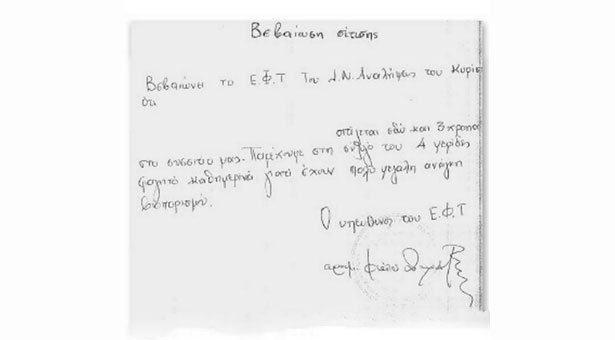 Βεβαίωση σίτισης
Βεβαιώνει το Ε.Φ.Τ του Ι.Ν. Αναλήψεως του Κυρίου
ότι
σιτίζεται εδώ και 3 χρόνια
στο συσσίτιο μας. Παρέχουμε στη σύζυγό του 4 μερίδες
φαγητό καθημερινά γιατί έχουν πολύ μεγάλη ανάγκη
βιοπορισμού.
Ο υπεύθυνος του Ε.Φ.Τ
αρχιμ.